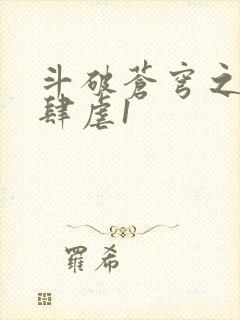 斗破苍穹之
肆虐1
羅希